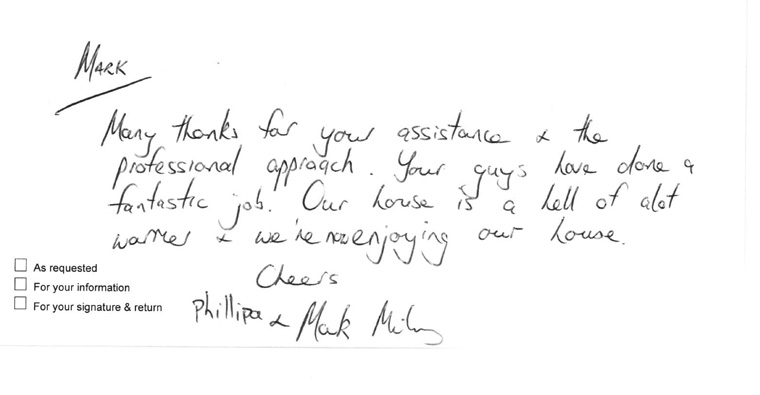 MARK
Many thanks for your assistance & the
professional approach. Your guys have done a
fantastic job. Our house is a hell of alot
warmer & we're now enjoying our house.
As requested
Cheers
For your information
For your signature & return
Phillipa & Mark